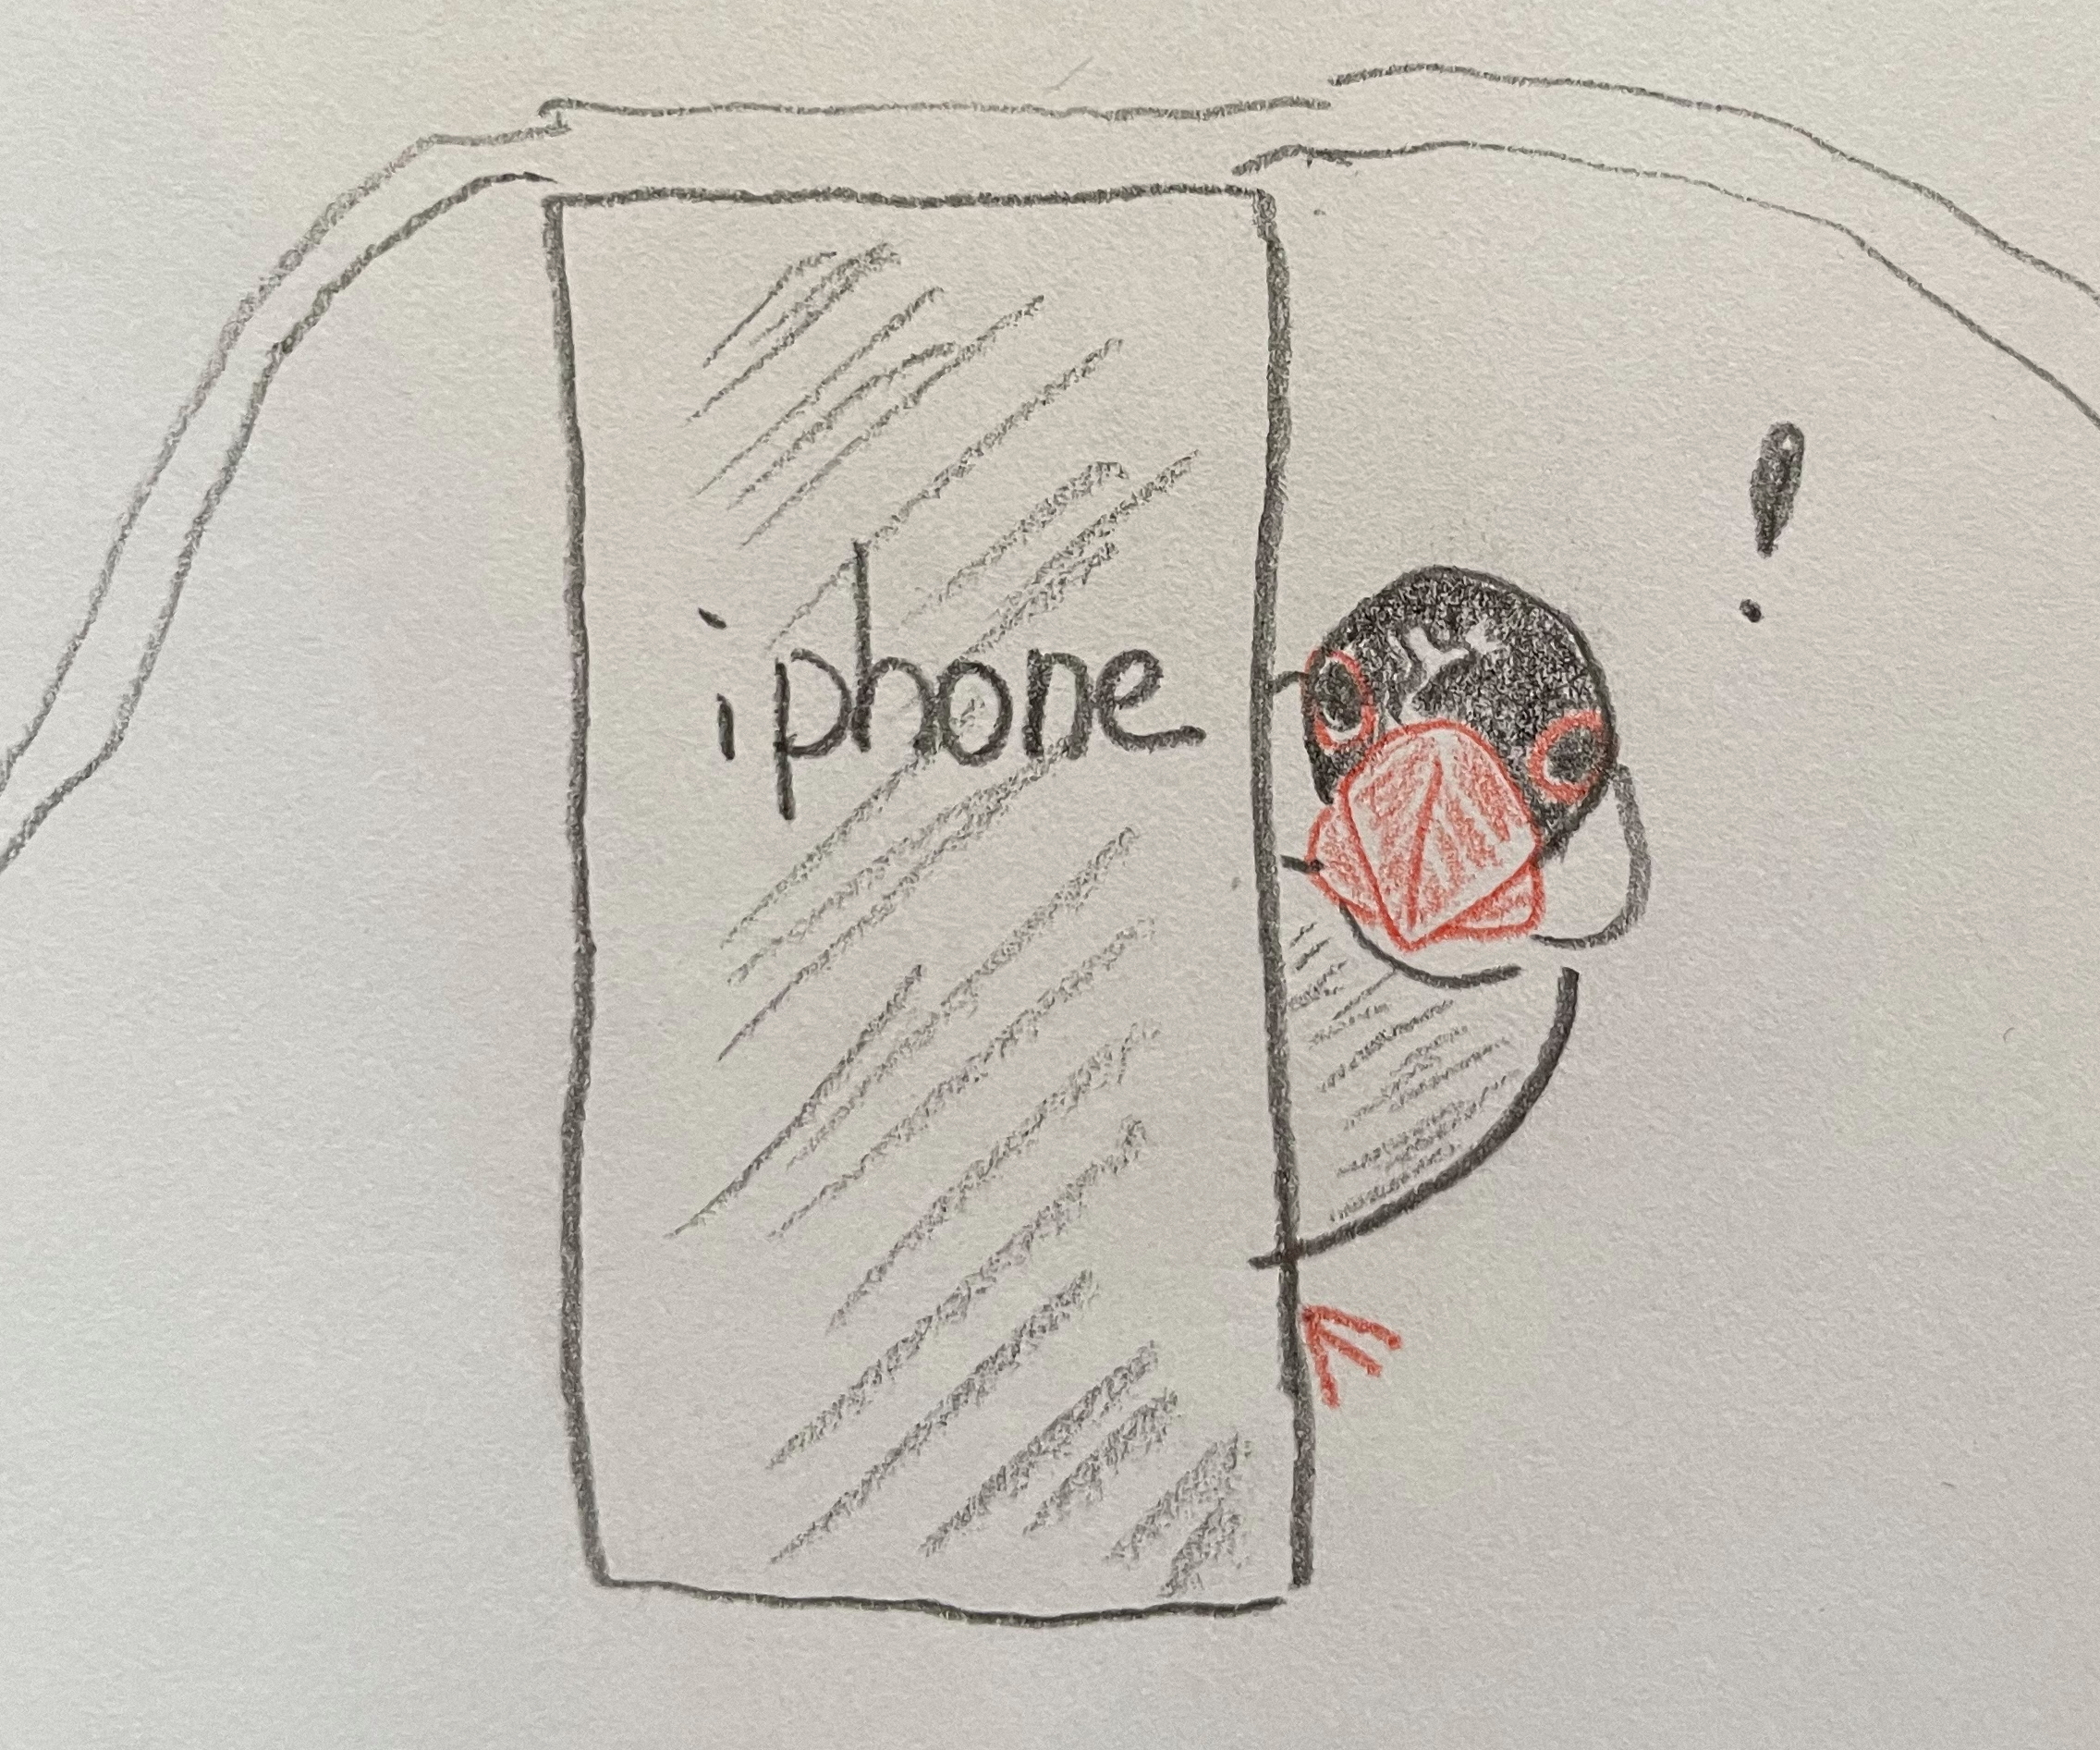 iphone
!